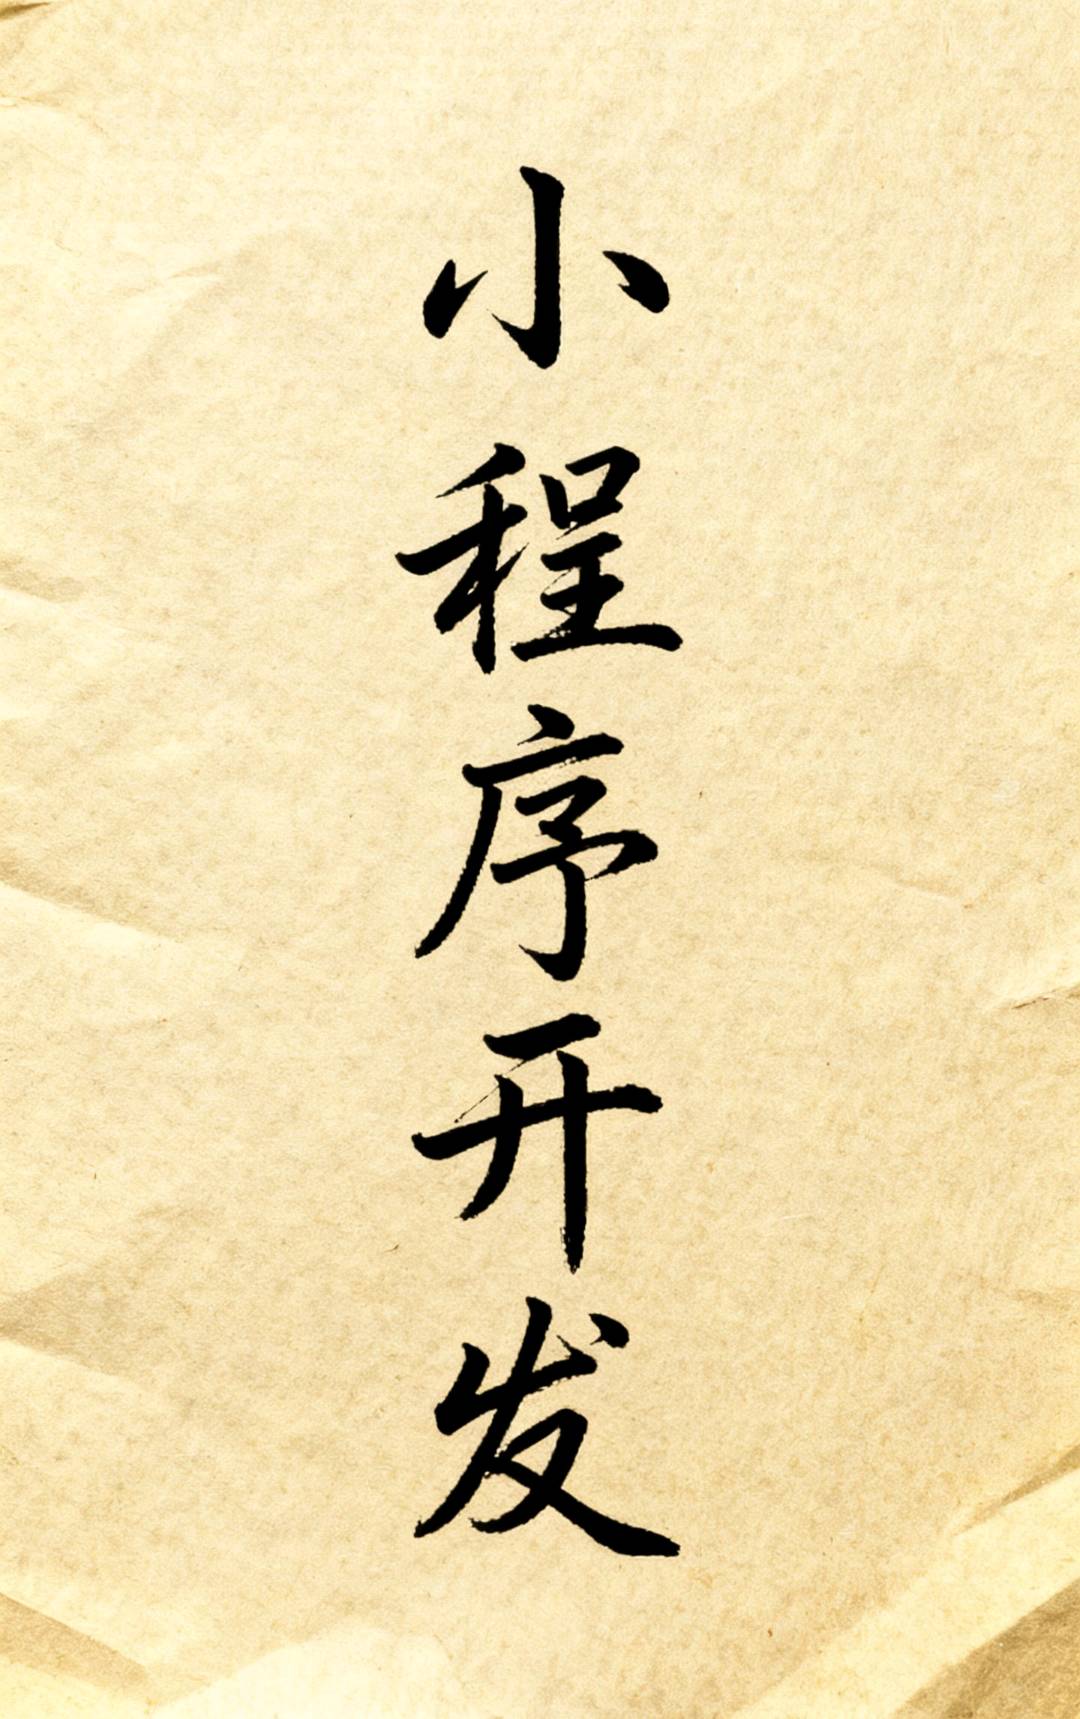 小程序开发